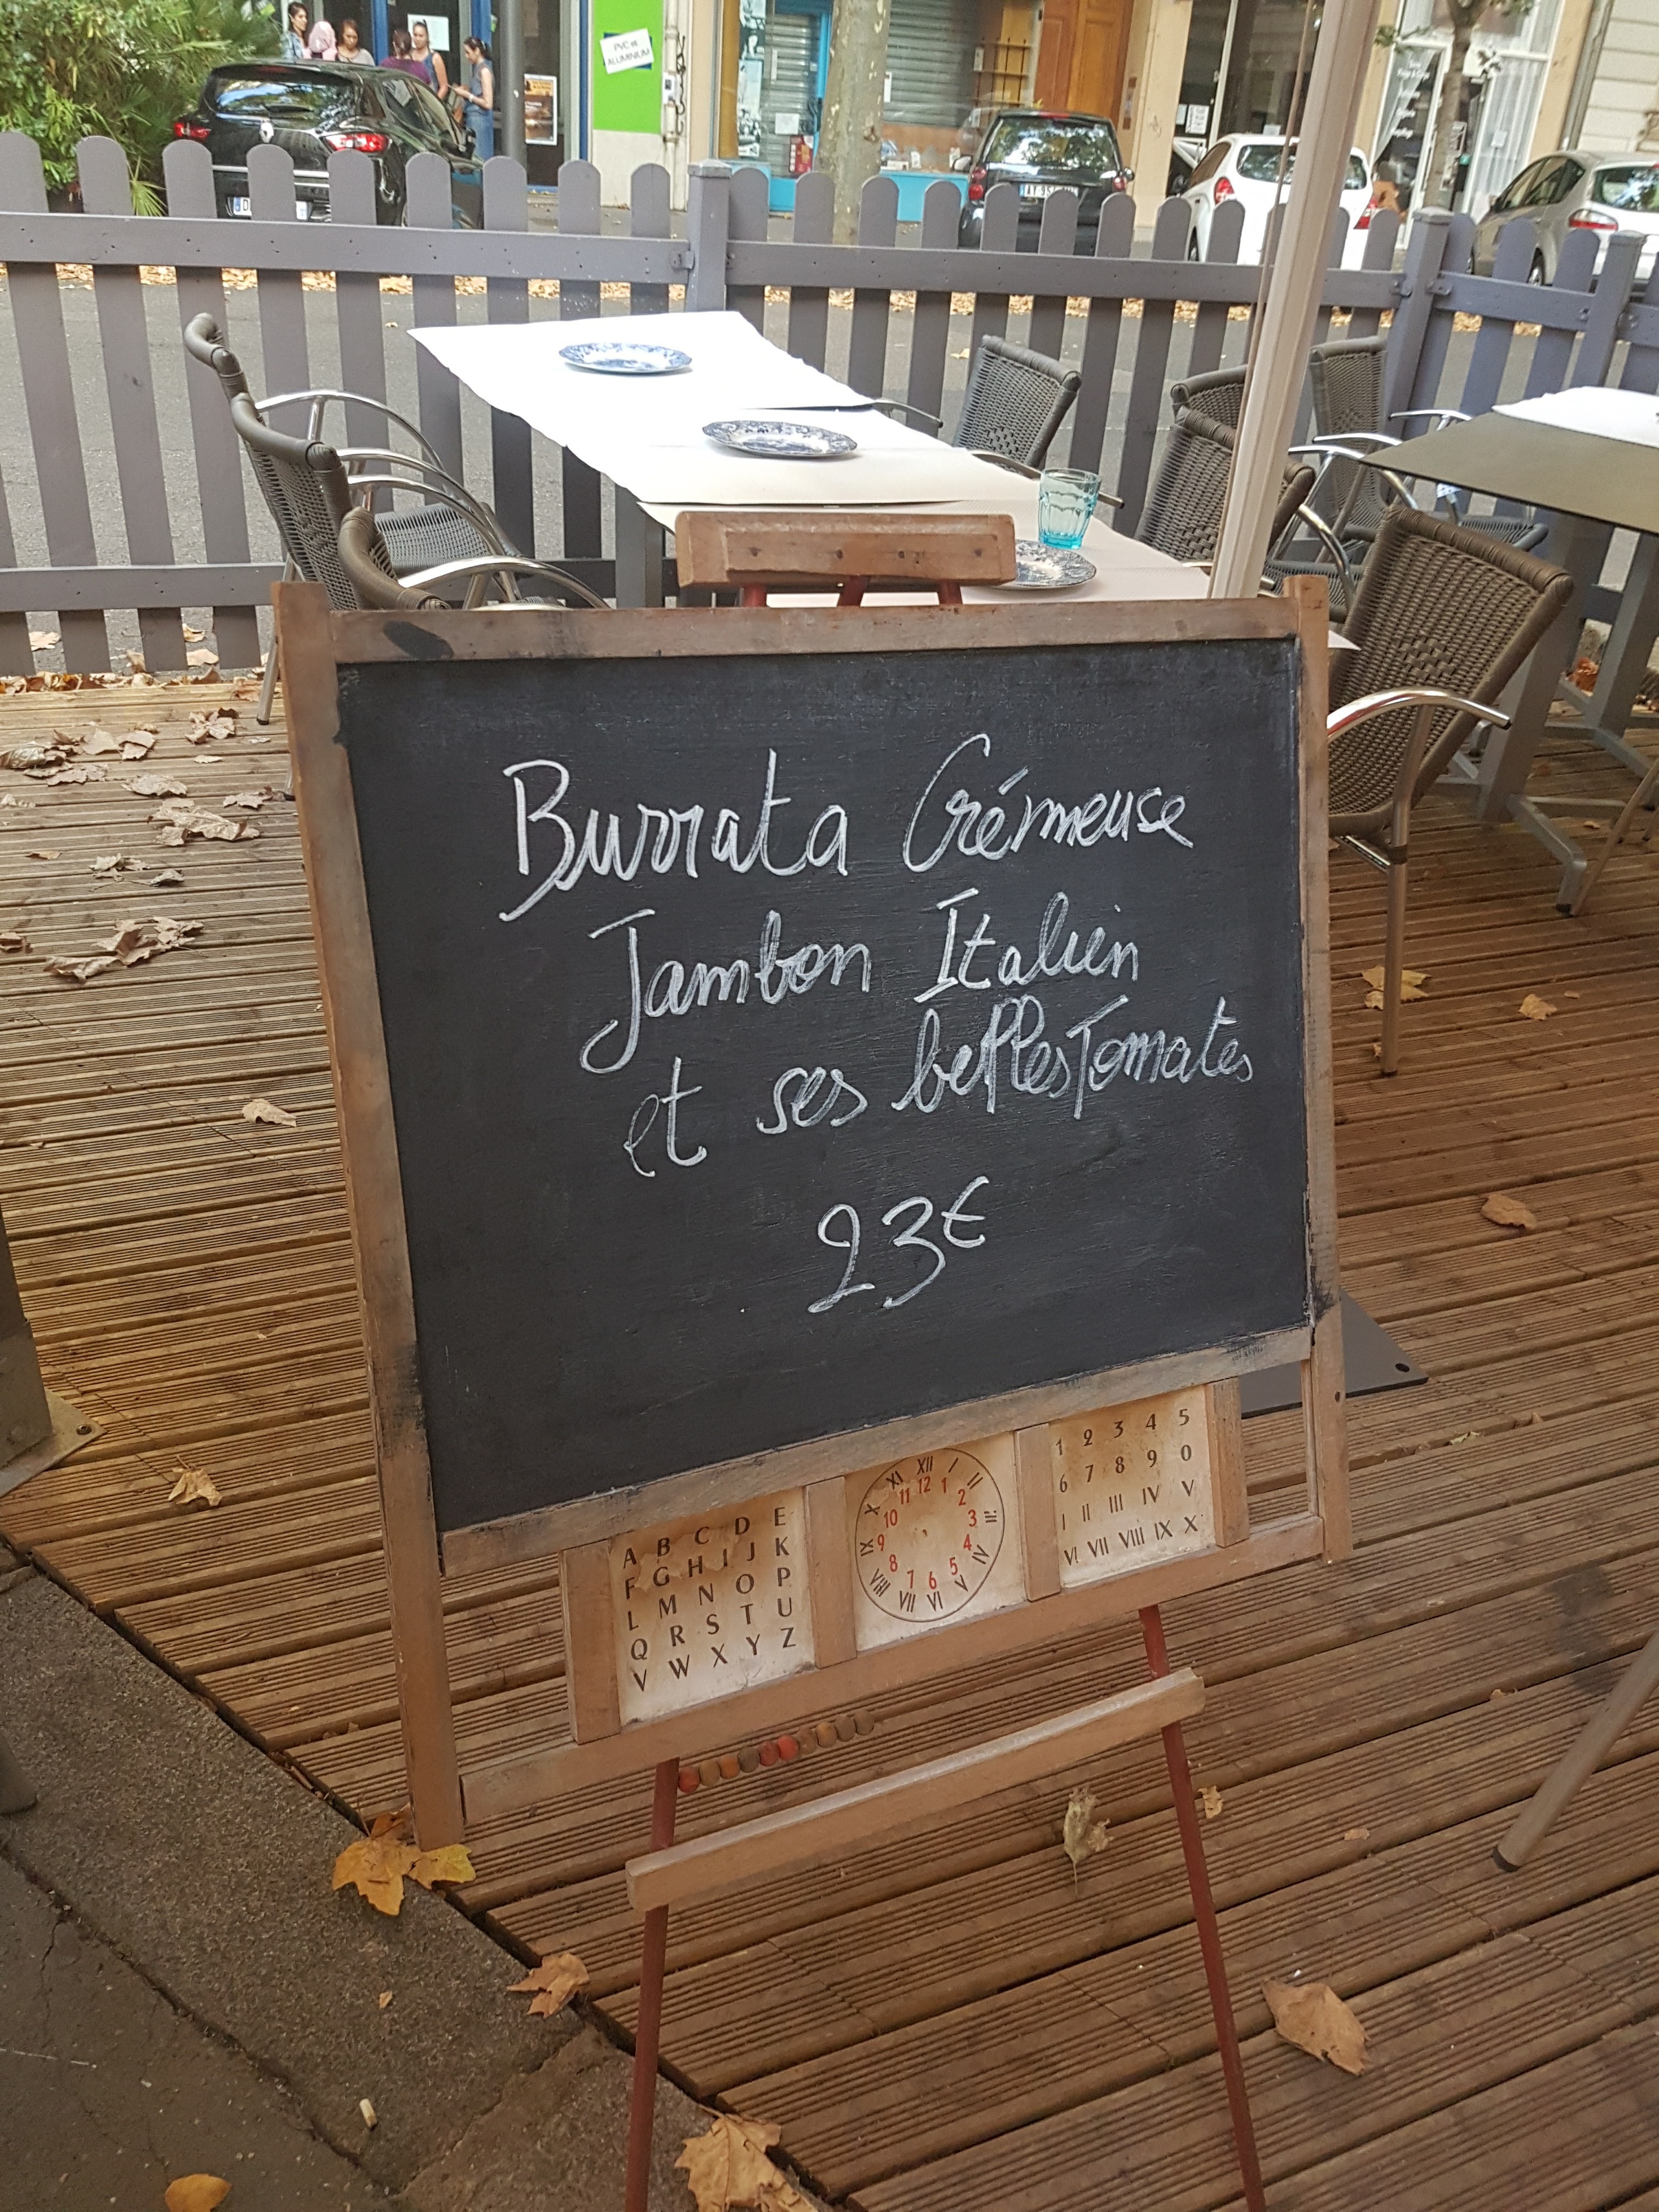 PVC et
ALUMINIUM
Burrata Crémeuse
Jambon Italien
et ses belles Tomates
23€
A B C D E
F G H I J K
L M N O P
Q R S T U
V W X Y Z
XII I II III IV V VI VII VIII IX X XI
12 1 2 3 4 5 6 7 8 9 10 11
1 2 3 4 5
6 7 8 9 0
I II III IV V
VI VII VIII IX X